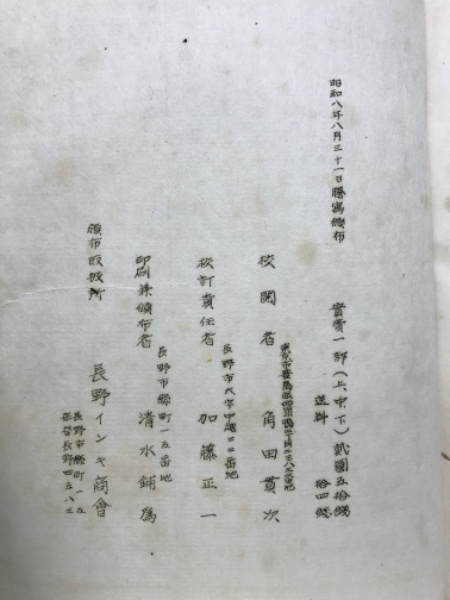 昭和八年八月三十一日謄寫頒布
實費一部（上、中、下）貳圓五拾錢
送料 拾四錢
校閲者 角田貫次
長野市大字中越二二番地
校訂責任者 加藤正一
長野市縣町一五番地
印刷兼頒布者 清水鋪爲
頒布取扱所 長野インキ商會
長野市縣町一五
振替長野四五八